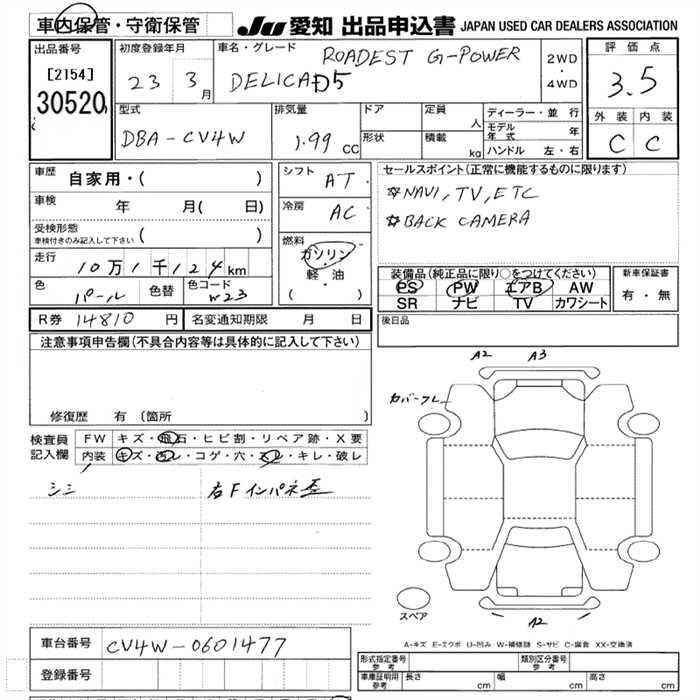 車内保管・守衛保管 JU 愛知 出品申込書 JAPAN USED CAR DEALERS ASSOCIATION
出品番号 初度登録年月 車名・グレード ROADEST G-POWER 2WD・4WD 評価点
[2154] 23 3月 DELICA D5 3.5
30520
型式 DBA-CV4W 排気量 1.99 CC ドア 定員 人 ディーラー・並行 外装 内装
形状 積載 kg モデル年式 年 C C
ハンドル 左・右
車歴 自家用・( ) シフト AT セールスポイント(正常に機能するものに限ります)
車検 年 月( 日) 冷房 AC ☆NAVI, TV, ETC
受検形態 ( ) ☆BACK CAMERA
車検付きのみ記入して下さい
走行 10万1千124km 燃料 ガソリン・軽油 ( ) 装備品(純正品に限り○をつけてください) 新車保証書
色 パール 色替 色コード W23 PS PW エアB AW 有・無
SR ナビ TV カワシート
R券 14810 円 名変通知期限 月 日 後日品
注意事項申告欄(不具合内容等は具体的に記入して下さい)
A2 A3
カバーフレ
修復歴 有 (箇所 )
検査員 FW キズ・飛石・ヒビ割・リペア跡・X要
記入欄 内装 キズ・汚レ・コゲ・穴・スレ・キレ・破レ
シミ 右Fインパネ歪
スペア
A2
A-キズ E-エクボ U-凹み W-補修跡 S-サビ C-腐食 XX-交換済
車台番号 CV4W-0601477
登録番号
形式指定番号 参考 類別区分番号 参考
車庫証明用 参考 長さ cm 幅 cm 高さ cm